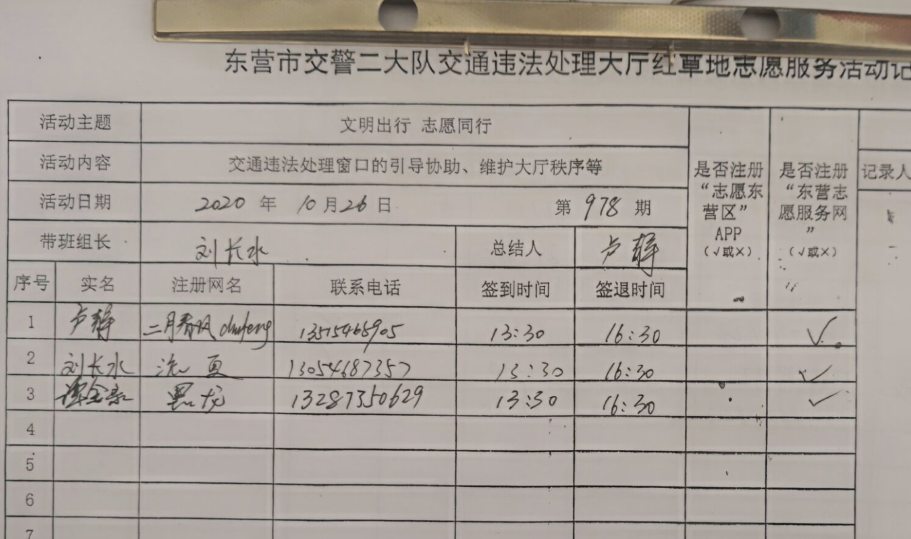 东营市交警二大队交通违法处理大厅红草地志愿服务活动记
活动主题 文明出行 志愿同行
活动内容 交通违法处理窗口的引导协助、维护大厅秩序等
活动日期 2020 年 10 月 26 日 第 978 期
带班组长 刘长水 总结人 卢静
是否注册
“志愿东
营区”
APP
(√或×)
是否注册
“东营志
愿服务网
”
(√或×)
记录人
序号 实名 注册网名 联系电话 签到时间 签退时间
1 卢静 二月春风 13515465905 13:30 16:30 √
2 刘长水 13054687357 13:30 16:30 √
3 黑龙 13287350629 13:30 16:30 √
4
5
6
7